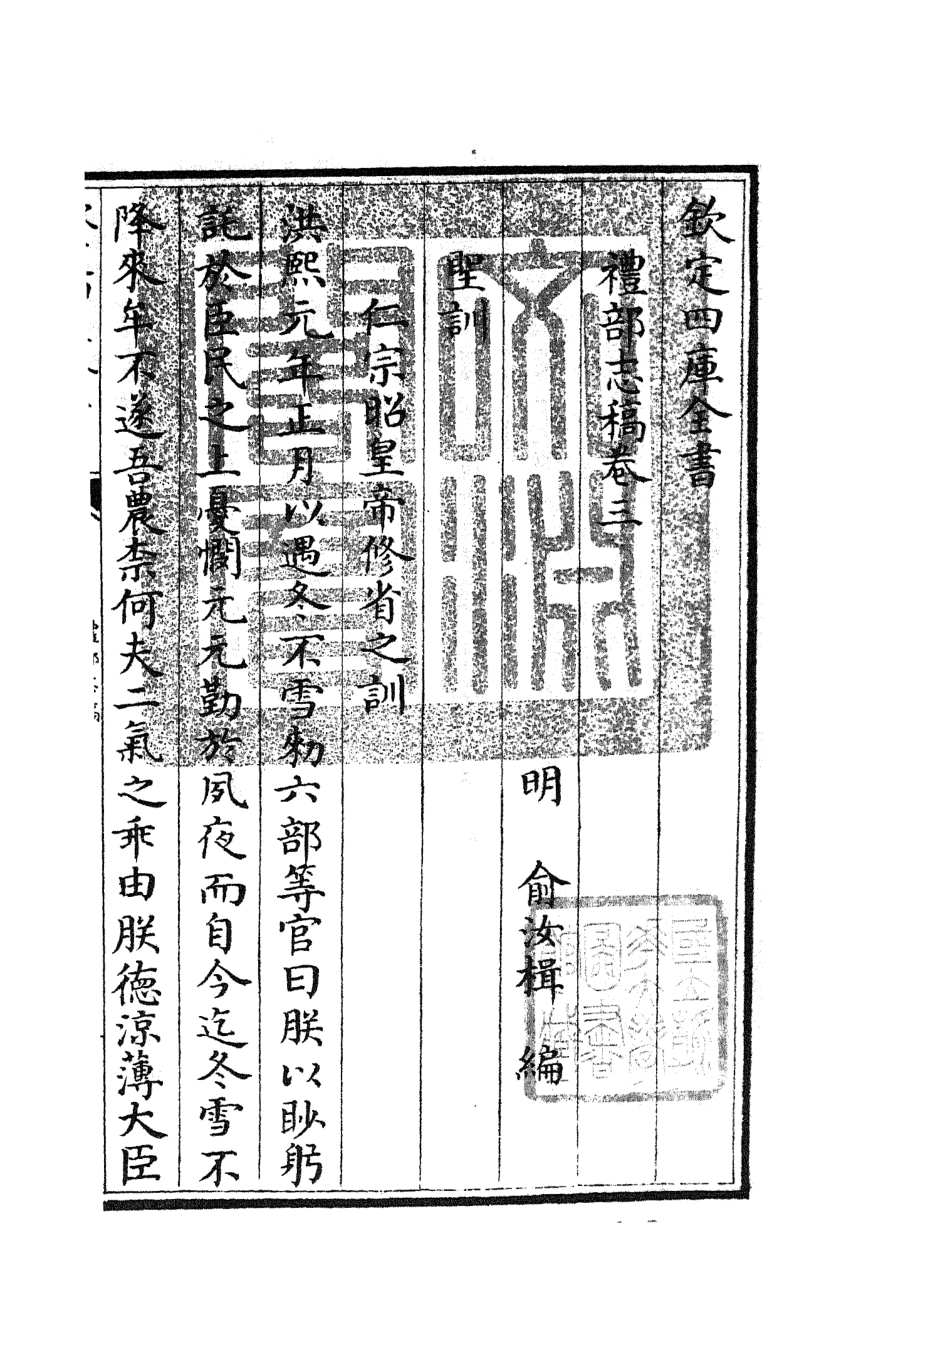 欽定四庫全書
禮部志稿卷三
明　俞汝楫　編
聖訓
仁宗昭皇帝修省之訓
洪熙元年正月以遇冬不雪勑六部等官曰朕以眇躬
託於臣民之上憂憫元元勤於夙夜而自今迄冬雪不
降來牟不遂吾農柰何夫二氣之乖由朕徳涼薄大臣